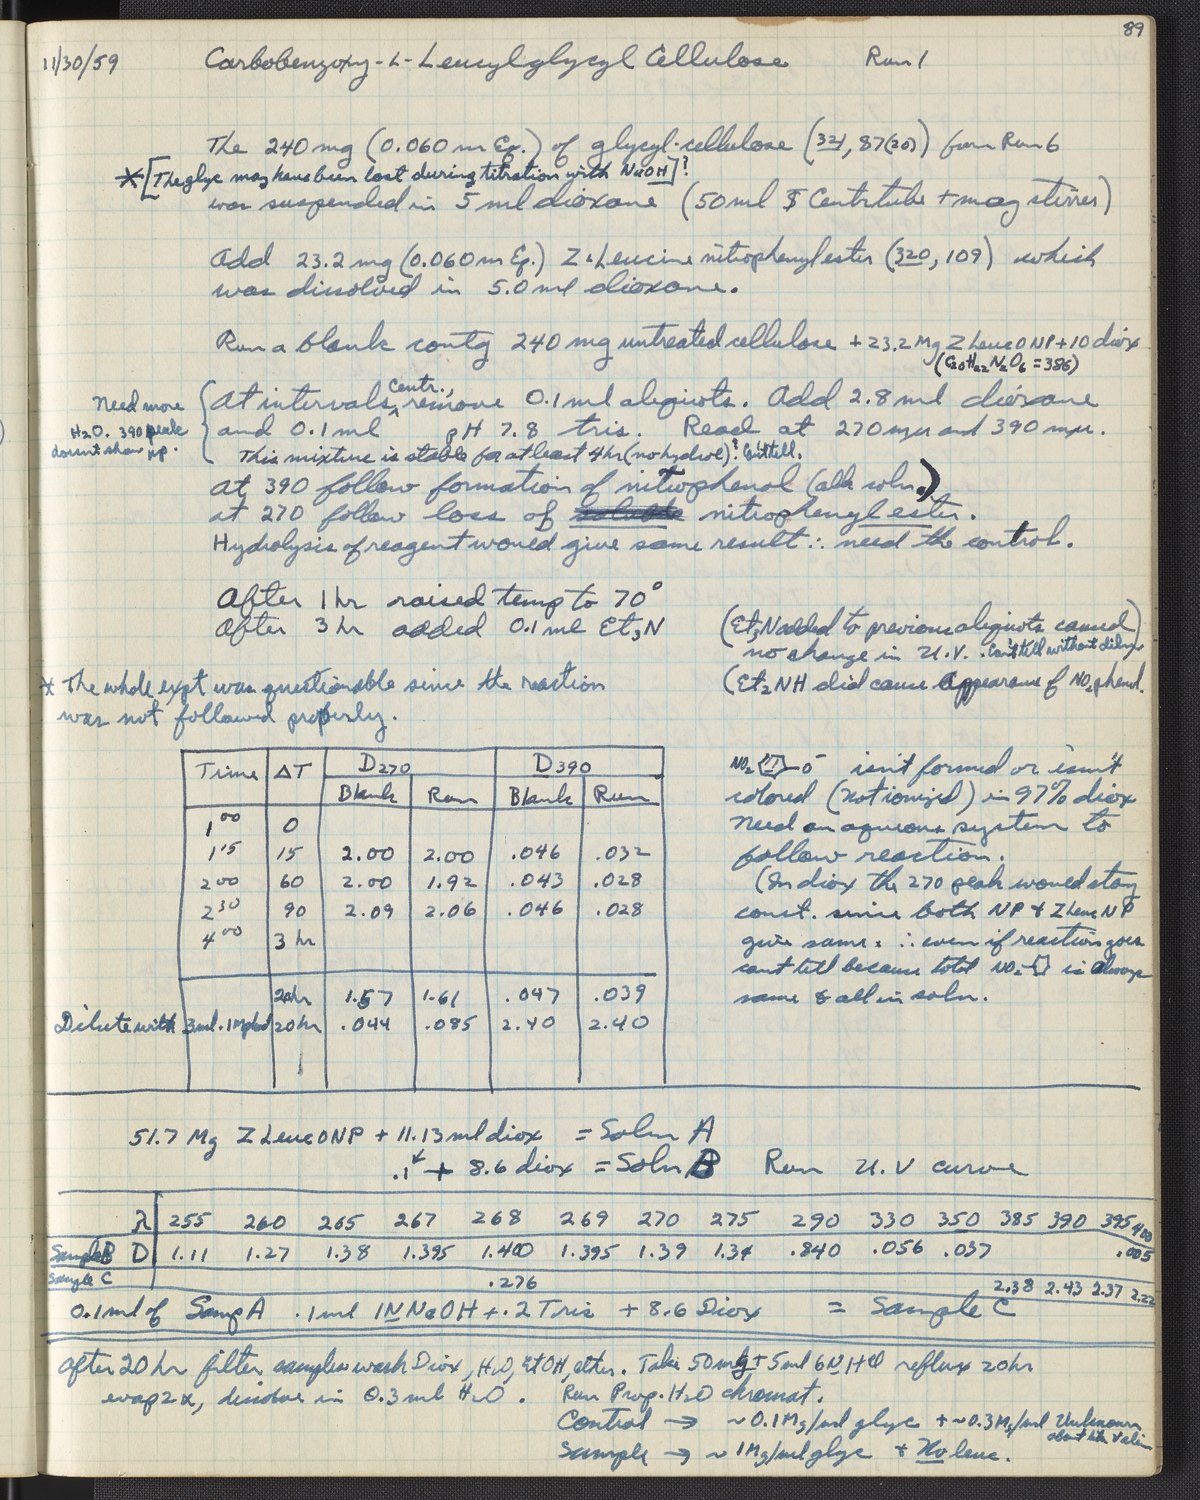 89
11/30/59 Carbobenzoxy-L-Leucylglycyl Cellulose Run 1
The 240 mg (0.060 m Eq.) of glycyl-cellulose (321, 87(20)) from Run 6
* [The glyc may have been lost during titration with NaOH]?
was suspended in 5 ml dioxane (50 ml $ Centr tube + mag stirrer)
Add 23.2 mg (0.060 m Eq.) Z-L-Leucine nitrophenyl ester (320, 109) which
was dissolved in 5.0 ml dioxane.
Run a blank contg 240 mg untreated cellulose + 23.2 Mg Z Leuc ONP + 10 diox
(C20H22N2O6 = 386)
At intervals, centr., remove 0.1 ml aliquots. Add 2.8 ml dioxane
and 0.1 ml pH 7.8 tris. Read at 270 mµ and 390 mµ.
This mixture is stable for at least 4 hr (no hydrol)? Can't tell.
Need more
H2O. 390 peak
doesn't show up.
at 390 follow formation of nitrophenol (alk soln.)
at 270 follow loss of soluble nitrophenyl ester.
Hydrolysis of reagent would give same result ∴ need the control.
After 1 hr raised temp to 70°
After 3 hr added 0.1 ml Et3N
(Et3N added to previous aliquots caused)
no change in U.V. . Can't tell without
(Et2NH did cause appearance of NO2 phenol.
* The whole expt was questionable since the reaction
was not followed properly.
Time ΔT D270 D390
Blank Run Blank Run
1 00 0
1 15 15 2.00 2.00 .046 .032
2 00 60 2.00 1.92 .043 .028
2 30 90 2.09 2.06 .046 .028
4 00 3 hr
20hr 1.57 1.61 .047 .039
Dilute with 3 ml .1M 20hr .044 .085 2.40 2.40
NO2 O- isn't formed or isn't
colored (not ionized) in 97% diox
Need an aqueous system to
follow reaction.
(In diox the 270 peak would stay
const. since both NP + Z Leuc NP
give same. ∴ even if reaction goes
cant tell because total NO2- is always
same & all in soln.
51.7 Mg Z Leuc ONP + 11.13 ml diox = Soln A
.1 + 8.6 diox = Soln B Run U.V curve
λ 255 260 265 267 268 269 270 275 290 330 350 385 390 395 400
Sample B D 1.11 1.27 1.38 1.395 1.400 1.395 1.39 1.34 .840 .056 .037 .005
Sample C .276 2.38 2.43 2.37 2.22
0.1 ml of Samp A .1 ml 1N NaOH + .2 Tris + 8.6 Diox = Sample C
After 20 hr filter, samples wash Diox, H2O, EtOH, ether. Take 50 mg + 5 ml 6N HCl reflux 20 hr
evap 2x, dissolve in 0.3 ml H2O. Run Prop. H2O chromat.
Control → ~0.1 Mg/ml glyc + ~0.3 Mg/ml Unknown
about like valine
Sample → ~1 Mg/ml glyc + No leuc.